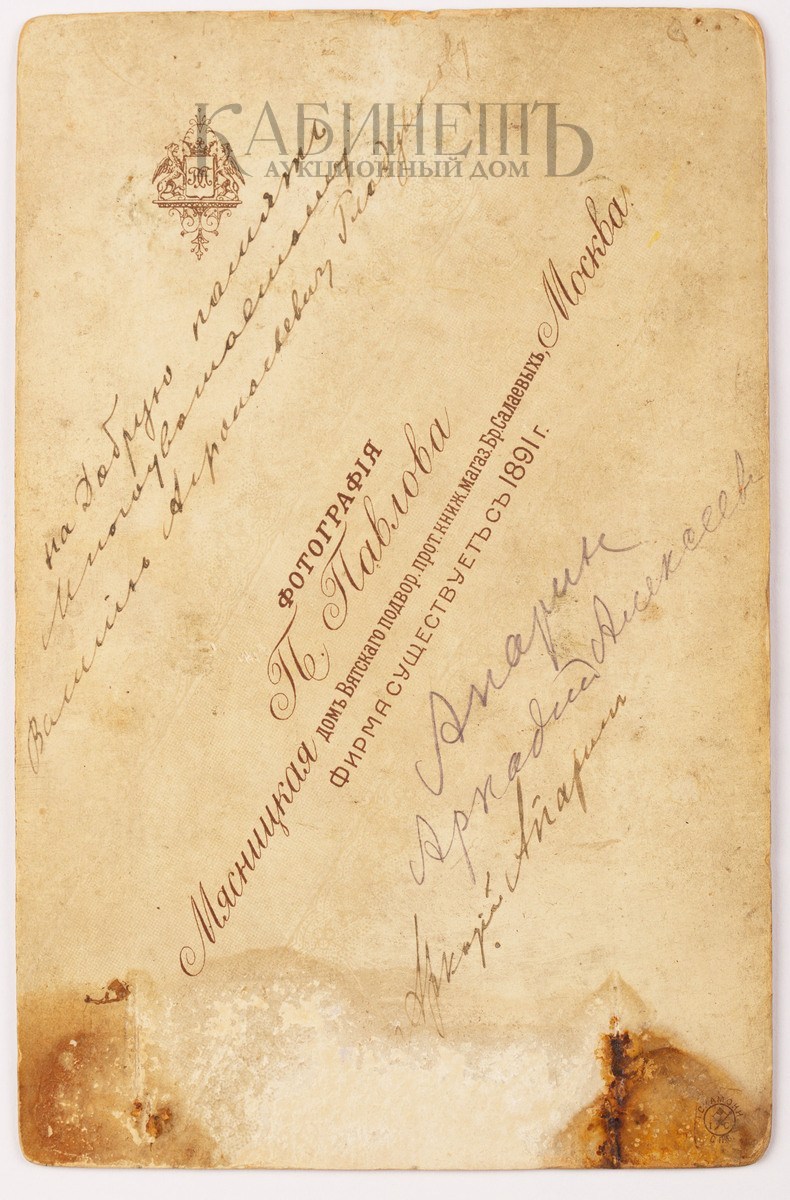 КАБИНЕТЪ
АУКЦИОННЫЙ ДОМ
на Добрую память
Многоуважаемому
ФОТОГРАФІЯ
П. Павлова
Мясницкая домъ Вятскаго подвор. прот. книж. магаз. Бр. Салаевыхъ, Москва.
ФИРМА СУЩЕСТВУЕТЪ СЪ 1891 г.
Апарин
Аркадий Алексеев
Аркадій Апарин